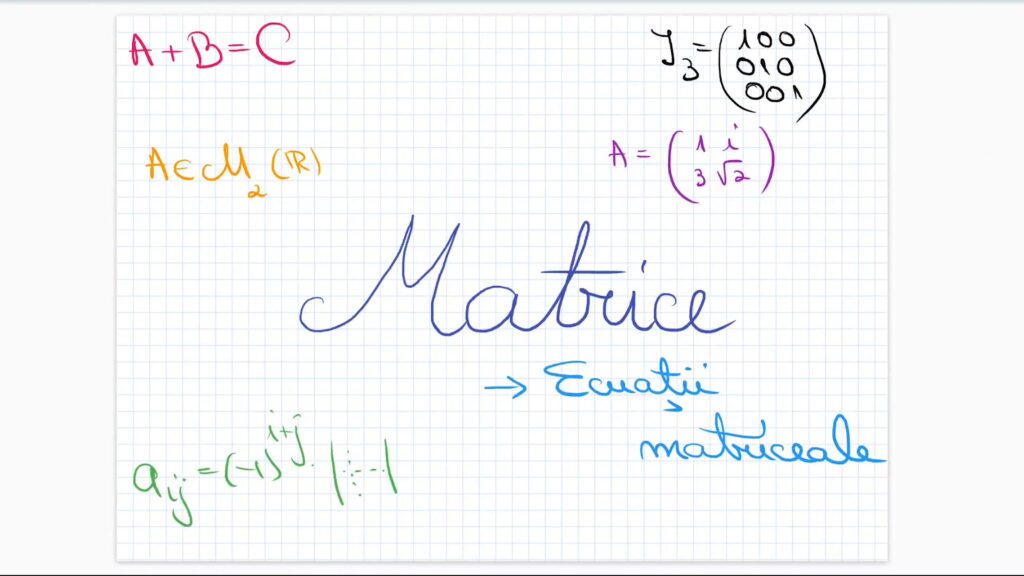 A + B = C
I₃ = (1 0 0
0 1 0
0 0 1)
A ∈ M₂ (ℝ)
A = (1 i
3 √2)
Matrice
→ Ecuații
matriceale
a_ij = (-1)^i+j · | |